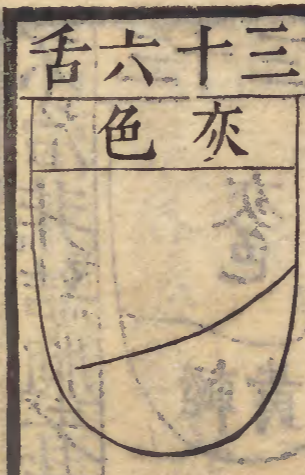 三十六舌
灰色